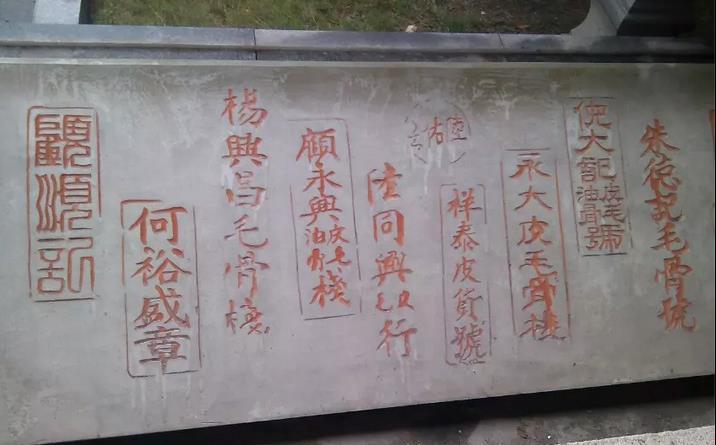 朱德記毛骨號
倪大記皮毛油骨號
永大皮毛骨棧
祥泰皮貨號
陸
祐
陸同興記行
顧永興皮毛油骨棧
楊興昌毛骨棧
何裕盛章
顧順記